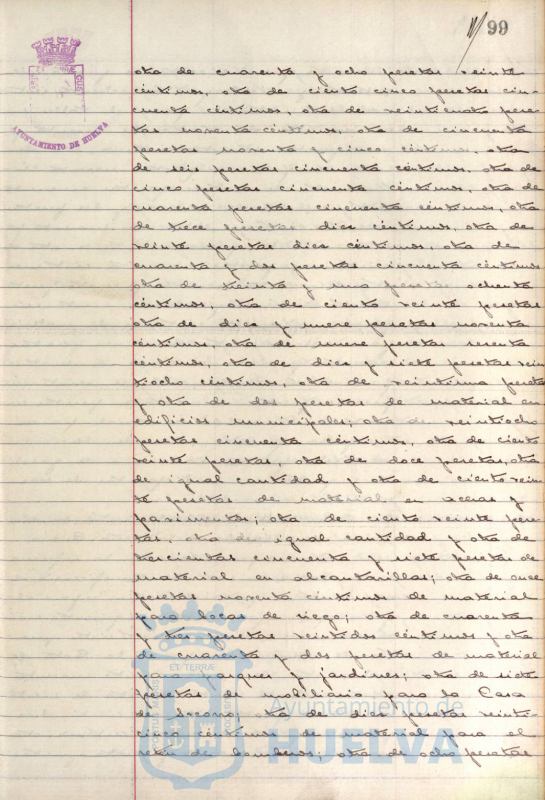 99
AYUNTAMIENTO DE HUELVA
otra de cuarenta y ocho pesetas veinte
céntimos, otra de ciento cinco pesetas cin-
cuenta céntimos, otra de veinticuatro pese-
tas noventa céntimos, otra de cincuenta
pesetas noventa y cinco céntimos, otra
de seis pesetas cincuenta céntimos, otra de
cinco pesetas cincuenta céntimos, otra de
cuarenta pesetas cincuenta céntimos, otra
de trece pesetas diez céntimos, otra de
veinte pesetas diez céntimos, otra de
cuarenta y dos pesetas cincuenta céntimos
otra de treinta y una pesetas ochenta
céntimos, otra de ciento veinte pesetas
otra de diez y nueve pesetas noventa
céntimos, otra de nueve pesetas sesenta
céntimos, otra de diez y siete pesetas vein
tiocho céntimos, otra de veintiuna peseta
y otra de dos pesetas de material en
edificios municipales; otra de veintiocho
pesetas cincuenta céntimos, otra de ciento
veinte pesetas, otra de doce pesetas, otra
de igual cantidad y otra de ciento vein
te pesetas de material en aceras y
pavimentos; otra de ciento veinte pese-
tas, otra de igual cantidad y otra de
trescientas cincuenta y siete pesetas de
material en alcantarillas; otra de once
pesetas noventa céntimos de material
para bocas de riego; otra de cuarenta
y tres pesetas veintidos céntimos y otra
de cuarenta y dos pesetas de material
para parques y jardines; otra de siete
pesetas de mobiliario para la Casa
de Socorro; otra de diez pesetas veinti-
cinco céntimos de material para el
reten de bomberos; otra de ocho pesetas
ET TERRÆ
Ayuntamiento de
HUELVA